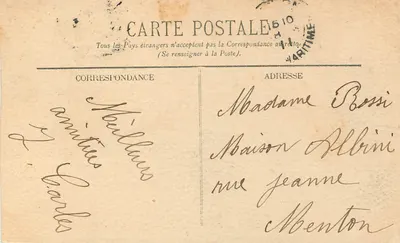 CARTE POSTALE
Tous les Pays étrangers n'acceptent pas la Correspondance au
(Se renseigner à la Poste).
MARITIME
CORRESPONDANCE
Meilleures
amitiés
Charles
ADRESSE
Madame Rossi
Maison Albini
rue Jeanne
Menton